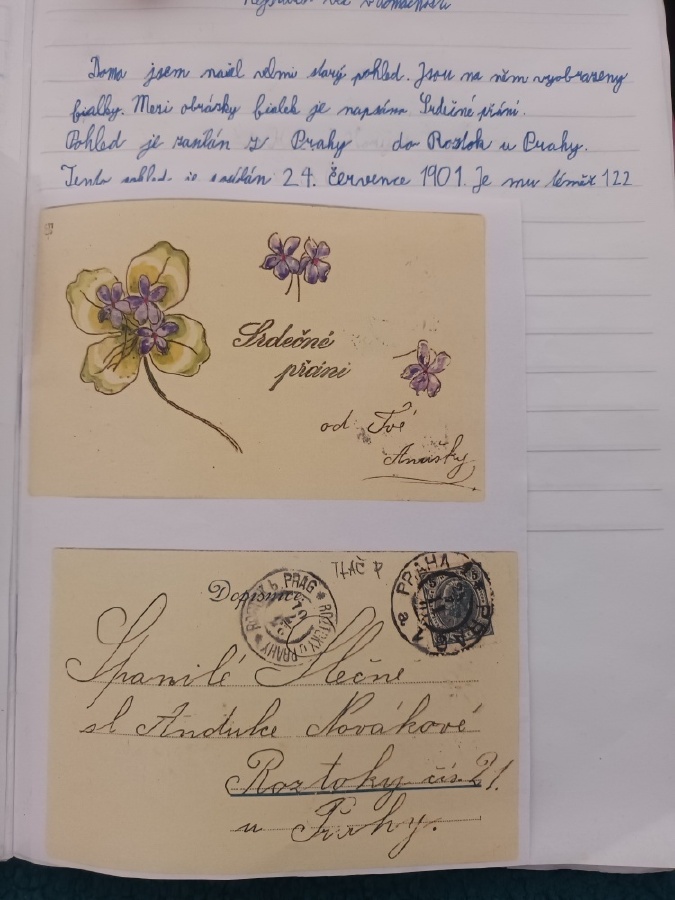 Nejstarší věc v domácnosti
Doma jsem našel velmi starý pohled. Jsou na něm vyobrazeny
fialky. Mezi obrázky fialek je napsáno Srdečné přání.
Pohled je zaslán z Prahy do Roztok u Prahy.
Tento pohled je zaslán 24. července 1901. Je mu téměř 122
Srdečné
přáni
od Tvé
Anušky
TLAČ P
Dopisnice
ROZTOK b. PRAG * ROZTOKY u PRAHY *
PRAHA 1 PRAG a
Spanilé Slečně
sl Andulce Novákové
Roztoky čís. 21.
u Prahy.